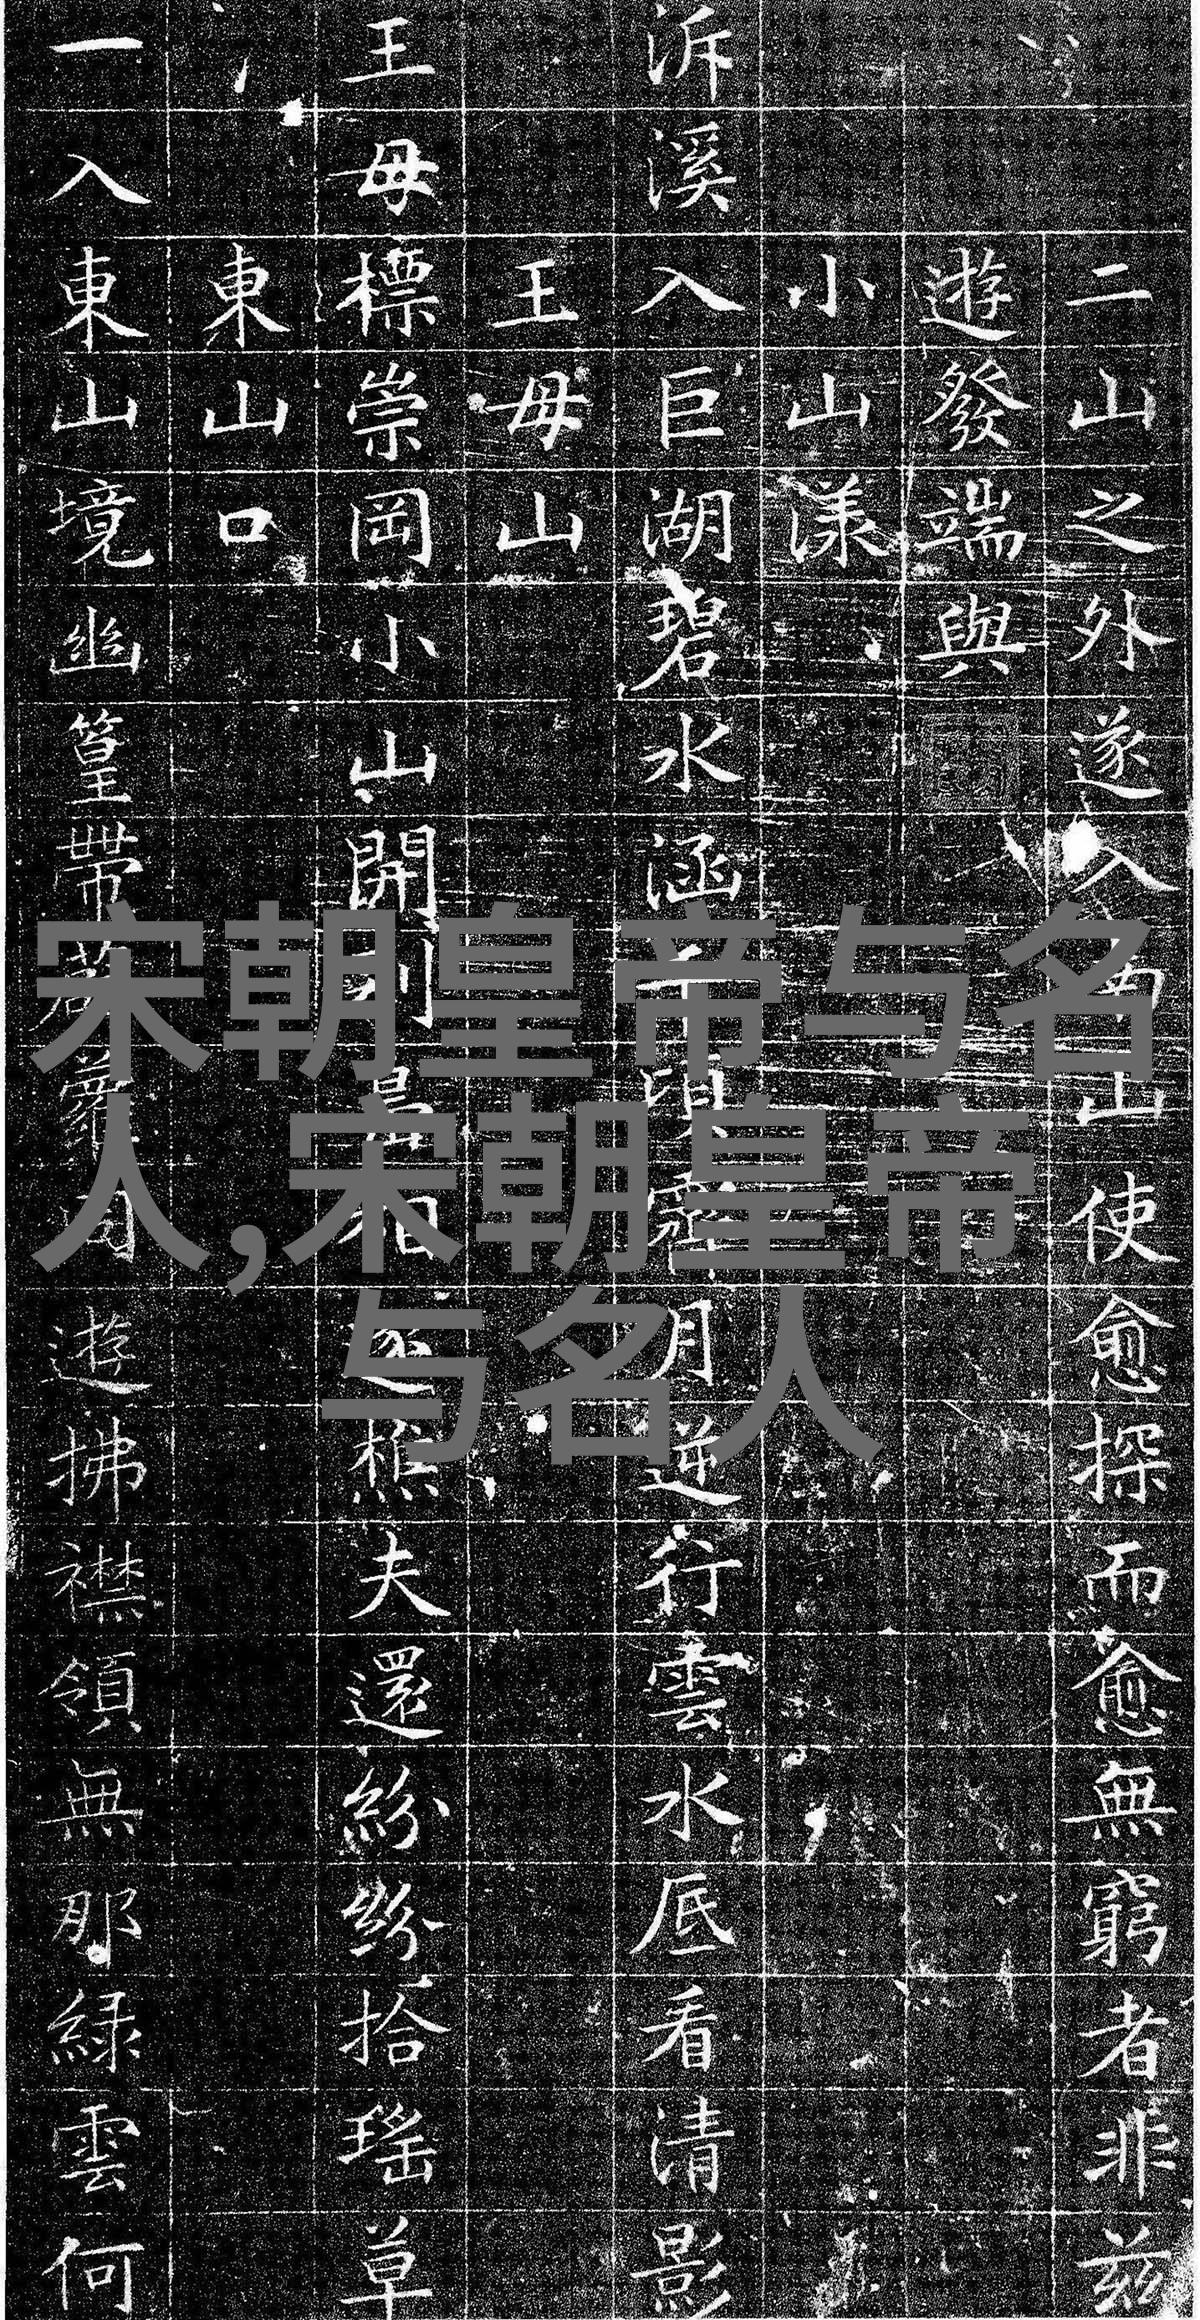 宋朝皇帝与名
人,宋朝皇帝
与名人
二山之外遂入山使愈探而愈無窮者非茲
遊發端與
小山漾
泝溪入巨湖碧水涵千頃月逆行雲水底看清影
王母山
王母標崇岡小山開別島相逐樵夫還紛紛拾瑤草
東山口
一入東山境幽篁帶蘿同遊拂襟領無那綠雲何